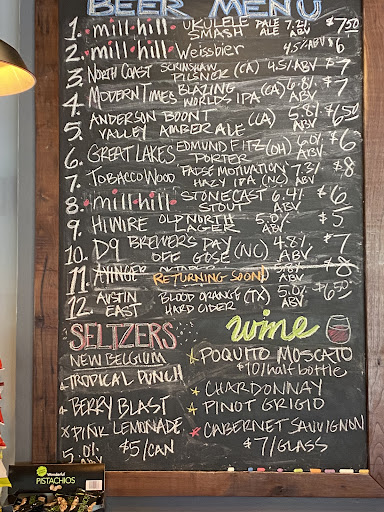 BEER MENU
1. mill hill UKULELE SMASH PALE ALE 7.2% ABV $7.50
2. mill hill Weissbier 4.5% ABV $6
3. NORTH COAST SCRIMSHAW PILSNER (CA) 4.5% ABV $7
4. MODERN TIMES BLAZING WORLDS IPA (CA) 6.8% ABV $7
5. ANDERSON BOONT VALLEY AMBER ALE (CA) 5.8% ABV $6.50
6. GREAT LAKES EDMUND FITZ PORTER (OH) 6.0% ABV $6
7. TOBACCO WOOD "FALSE MOTIVATION" HAZY IPA (NC) 7.3% ABV $8
8. mill hill STONECAST STOUT 6.4% ABV $6
9. HIWIRE OLD NORTH LAGER 5.0% ABV $5
10. D9 BREWERS DAY OFF GOSE (NC) 4.8% ABV $7
11. AYINGER RETURNING SOON! ABV $8
12. AUSTIN EAST BLOOD ORANGE HARD CIDER (TX) 5.0% ABV $6.50
SELTZERS
NEW BELGIUM
TROPICAL PUNCH
BERRY BLAST
PINK LEMONADE
5.0% ABV $5/CAN
wine
POQUITO MOSCATO
$10/half bottle
CHARDONNAY
PINOT GRIGIO
CABERNET SAUVIGNON
$7/GLASS
Wonderful
PISTACHIOS